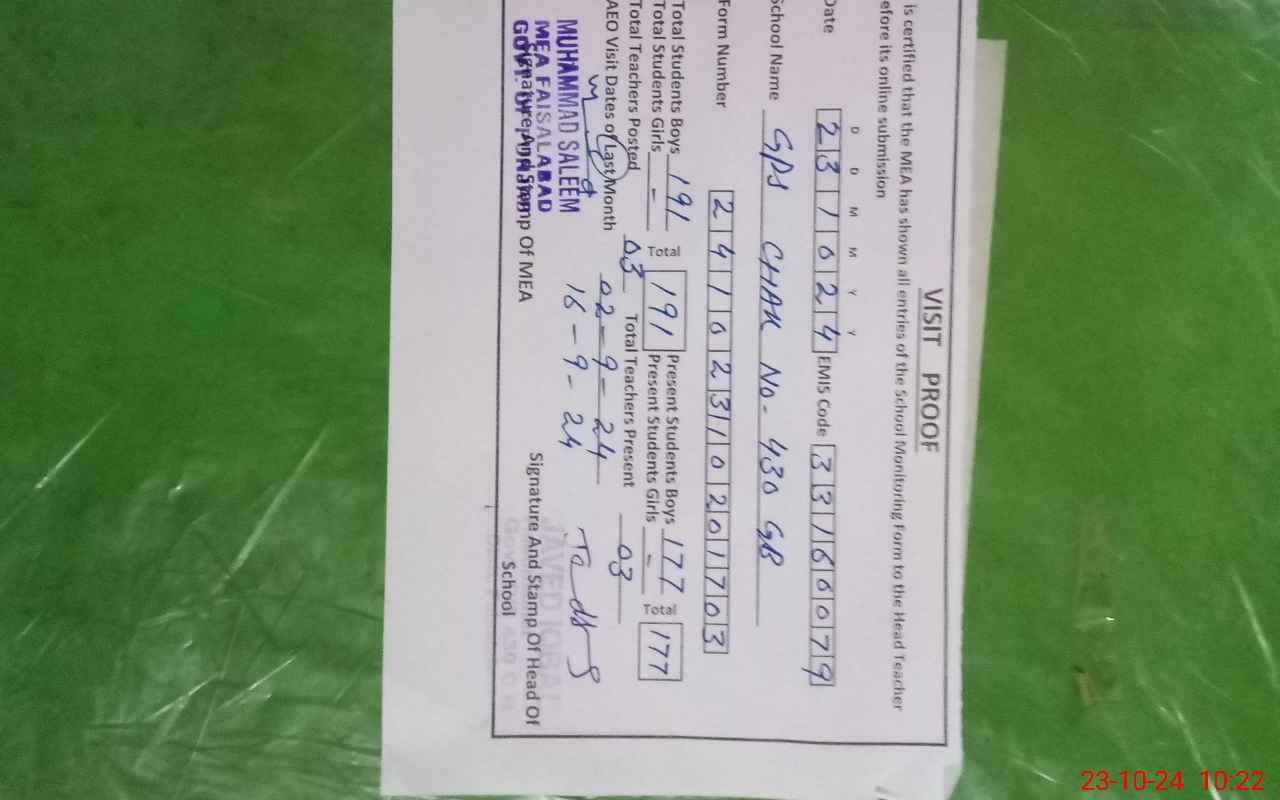 VISIT PROOF
is certified that the MEA has shown all entries of the School Monitoring Form to the Head Teacher
efore its online submission
D D M M Y Y
Date 23 10 24 EMIS Code 33160079
School Name GPS CHAK No- 430 GB
Form Number 2410231020 1703
Total Students Boys 191 Total 191 Present Students Boys 177 Total 177
Total Students Girls - Present Students Girls -
Total Teachers Posted 03 Total Teachers Present 03
AEO Visit Dates of Last Month 02-9-24
16-9-24
MUHAMMAD SALEEM
MEA FAISALABAD
GOVT. OF PUNJAB
Signature And Stamp Of MEA
JAVED IQBAL
Signature And Stamp Of Head Of
School
23-10-24 10:22